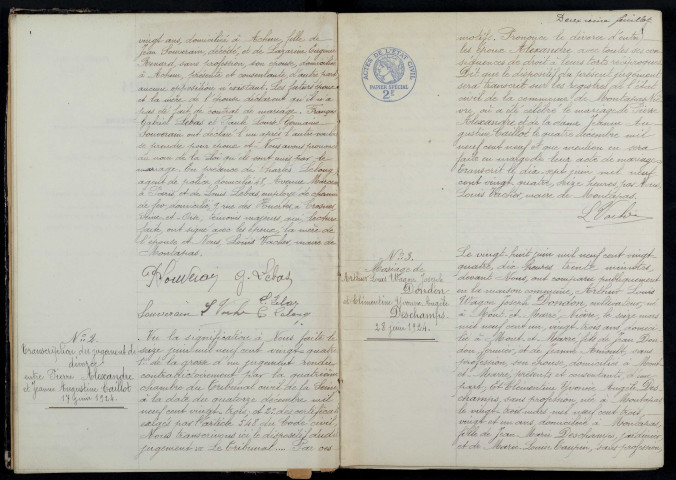 vingt ans, domiciliée à Achun, fille de
Jean Souverain, décédé, et de Lazarine Eugénie
Renard, sans profession, son épouse, domiciliée
à Achun, présente et consentante, d'autre part,
aucune opposition n'existant. Les futurs époux
et la mère de l'épouse déclarent qu'il n'a
pas été fait de contrat de mariage.
Gabriel Lebas et Paule Louise Germaine
Souverain ont déclaré l'un après l'autre vouloir
se prendre pour époux et Nous avons prononcé
au nom de la Loi qu'ils sont unis par le
mariage. En présence de Charles Lelong
agent de police domicilié
à Paris et de Louis Lebas, employé de chemin
de fer, domicilié
Seine et Oise, témoins majeurs qui, lecture
faite, ont signé avec les époux, la mère de
l'épouse et Nous, Louis Vacher, maire de
Montapas.
G. Lebas
Souverain L Vacher
N° 2.
Transcription du jugement de
divorce
entre Pierre Alexandre
et Jeanne Augustine Taillot
17 juin 1924.
Vu la signification à Nous faite le
seize juin mil neuf cent vingt quatre
1° de la grosse d'un jugement rendu
contradictoirement par la quatrième
chambre du Tribunal civil de la Seine
à la date du quatorze décembre mil
neuf cent vingt trois, et 2° des certificats
exigés par l'article 548 du Code civil,
Nous transcrivons ici le dispositif dudit
jugement : Le Tribunal.... Par ces
Deuxième feuillet
ACTES DE L'ÉTAT CIVIL
PAPIER SPÉCIAL
2F
motifs. Prononce le divorce d'entre
les époux Alexandre avec toutes ses con-
séquences de droit à leurs torts réciproques
Dit que le dispositif du présent jugement
sera transcrit sur les registres de l'état
civil de la commune de Montapas
où a été célébré le mariage du sieur
Alexandre et de la dame Jeanne Au-
gustine Taillot le quatre décembre mil
neuf cent neuf et que mention en sera
faite en marge de leur acte de mariage
Transcrit le dix sept juin mil neuf
cent vingt quatre, seize heures, par Nous
Louis Vacher, maire de Montapas.
L Vacher
N° 3.
Mariage de
Arthur Louis Wagon Joseph
Dordon
et Clémentine Yvonne Angèle
Deschamps.
28 juin 1924.
Le vingt huit juin mil neuf cent vingt-
quatre, dix heures trente minutes,
devant Nous ont comparu publiquement
en la maison commune, Arthur Louis
Wagon Joseph Dordon, cultivateur, né
à Mont et Marré, Nièvre, le seize mars
mil neuf cent un, vingt trois ans, domici-
lié à Mont et Marré, fils de Jean Dor-
don, et de Jeanne, sans
profession, son épouse, domiciliés à Mont
et Marré, présents et consentants, d'une
part, Et Clémentine Yvonne Angèle Des-
champs, sans profession, née à Montapas
le vingt trois mars mil neuf cent trois,
vingt et un ans, domiciliée à Montapas,
fille de Jean Marie Deschamps, jardinier
et de Marie Louise, sans profession,